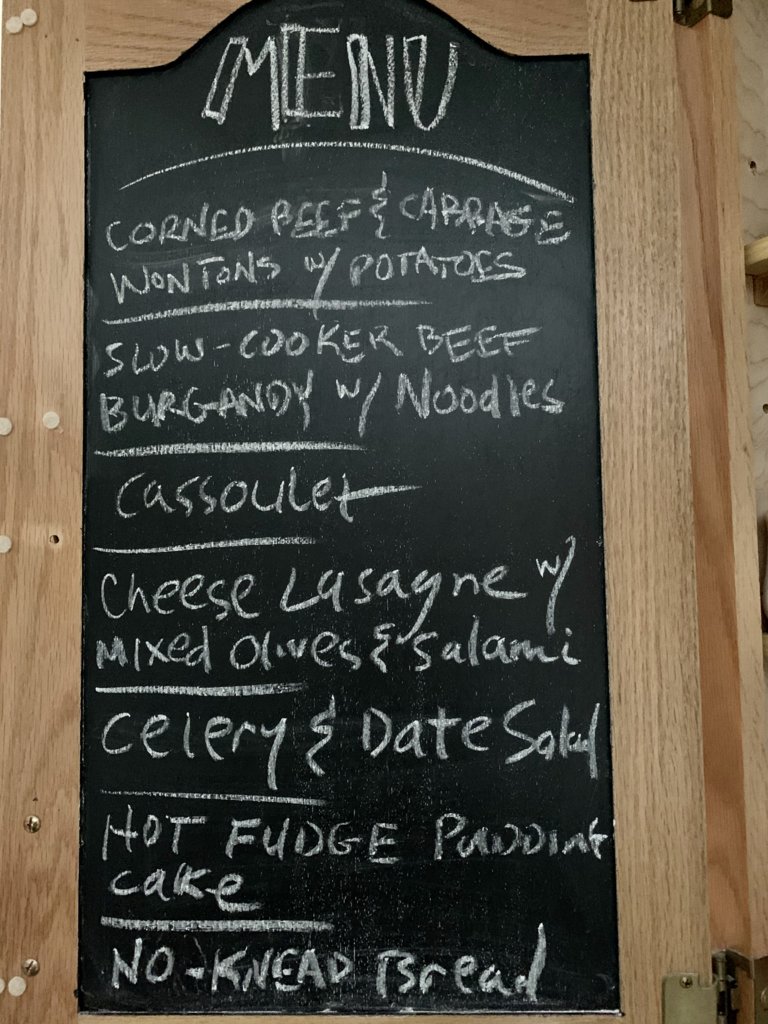 MENU
CORNED BEEF & CABBAGE
WONTONS w/ POTATOES
SLOW-COOKER BEEF
BURGANDY w/ Noodles
Cassoulet
Cheese Lasagne w/
MIXED Olives & Salami
Celery & Date Salad
HOT FUDGE PUDDING
Cake
NO-KNEAD Bread